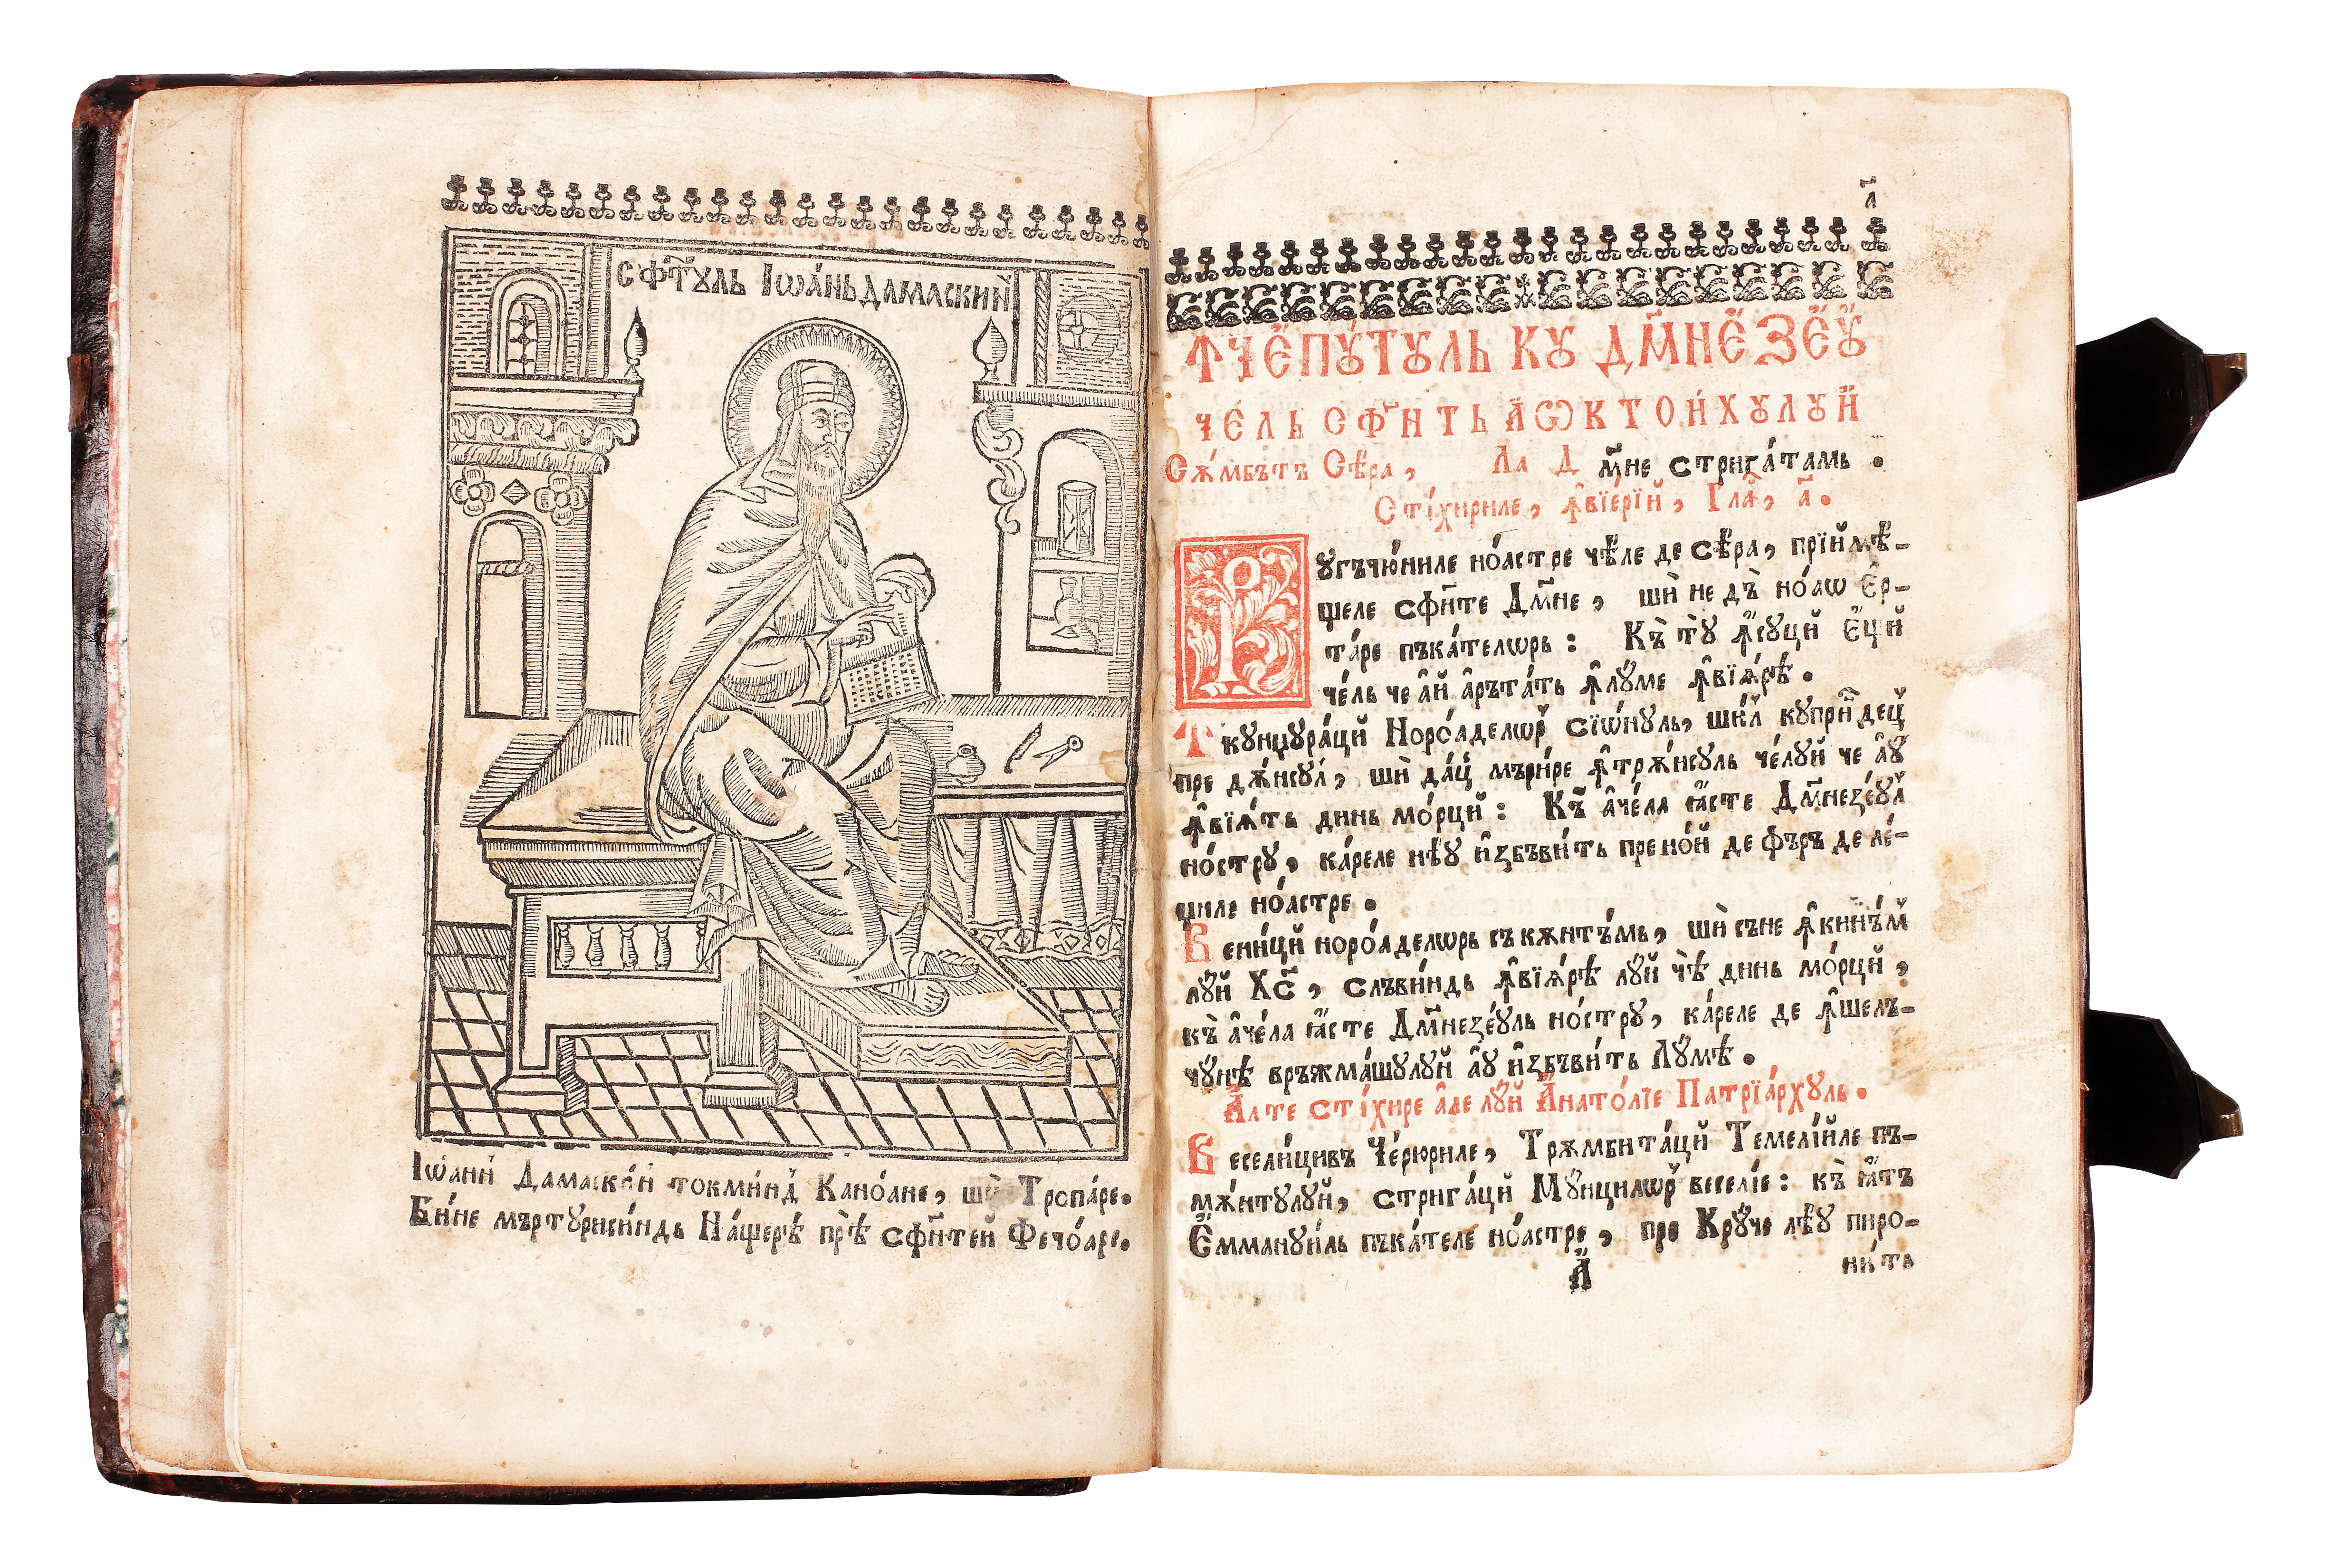 СФ҃ТУЛЬ ІѠА́НЬ ДАМАСКИЙ
Іѡа́ни Дамаски́н токми́нд Кано́ане, шѝ Тропа́ре.
Би́не мъртꙋриси́ндь На́щерѣ прѣ сфн҃тей Фечоа́ре.
а҃
Ꙟче́пꙋтꙋль кꙋ дм҃незеꙋ
че́ль сфн҃ть а ѡктои́хꙋлꙋй
Сѫ́мбътъ Сѣ́ра, Ла Дм҃не стрига́тамь.
Стіхириле, ꙟвїе́рїй, Гла, а҃.
Рꙋгъчю́ниле ноа́стре чѣле де сѣ́ра, прїймѣ-
щеле сфн҃те Дм҃не, шѝ не дъ̀ но́аѡ Єр-
та́ре пъка́телѡрь: Къ̀ тꙋ ꙟсꙋци Єщи
че́ль че ай аръта́ть ꙟлꙋ́ме ꙟвїѧ́рѣ.
Ꙟкꙋнџꙋра́ци Норо́аделѡр Сїѡ́нꙋль, ши́л кꙋпри́ндец
пре дѫ́нсꙋл, шѝ да́ц мъри́ре ꙟтрѫ́нсꙋль че́лꙋй че аꙋ
ꙟвїѧ́ть динь мо́рци: Къ̀ аче́ла ꙗ́сте Дм҃незе́ꙋл
но́стрꙋ, ка́реле нѣꙋ избъви́ть пре но́й де фъръ де ле́-
џиле ноа́стре.
Вени́ци норо́аделѡрь съ кѫнтъ́мь, шѝ съне ꙟкинъ́м
лꙋ́й Хс҃, слъви́ндь ꙟвїѧ́рѣ лꙋ́й чѣ динь мо́рци,
къ̀ аче́ла ꙗ́сте Дм҃незе́ꙋль но́стрꙋ, ка́реле де ꙟшелъ-
чꙋ́нѣ врѫжма́шꙋлꙋй аꙋ избъви́ть Лꙋ́мѣ.
А́лте стіхире але лꙋ́й Анато́лїе Патрїа́рхꙋль.
Весели́цивъ Че́рюриле, Трѫмбита́ци Темелі́йле пъ-
мѫ́нтꙋлꙋй, стрига́ци Мꙋ́нцилѡр весе́лїе: къ̀ ꙗ́тъ
Єммануи́ль пъка́теле ноа́стре, пре Крꙋ́че лѣꙋ пиро-
А҃ ни́ть